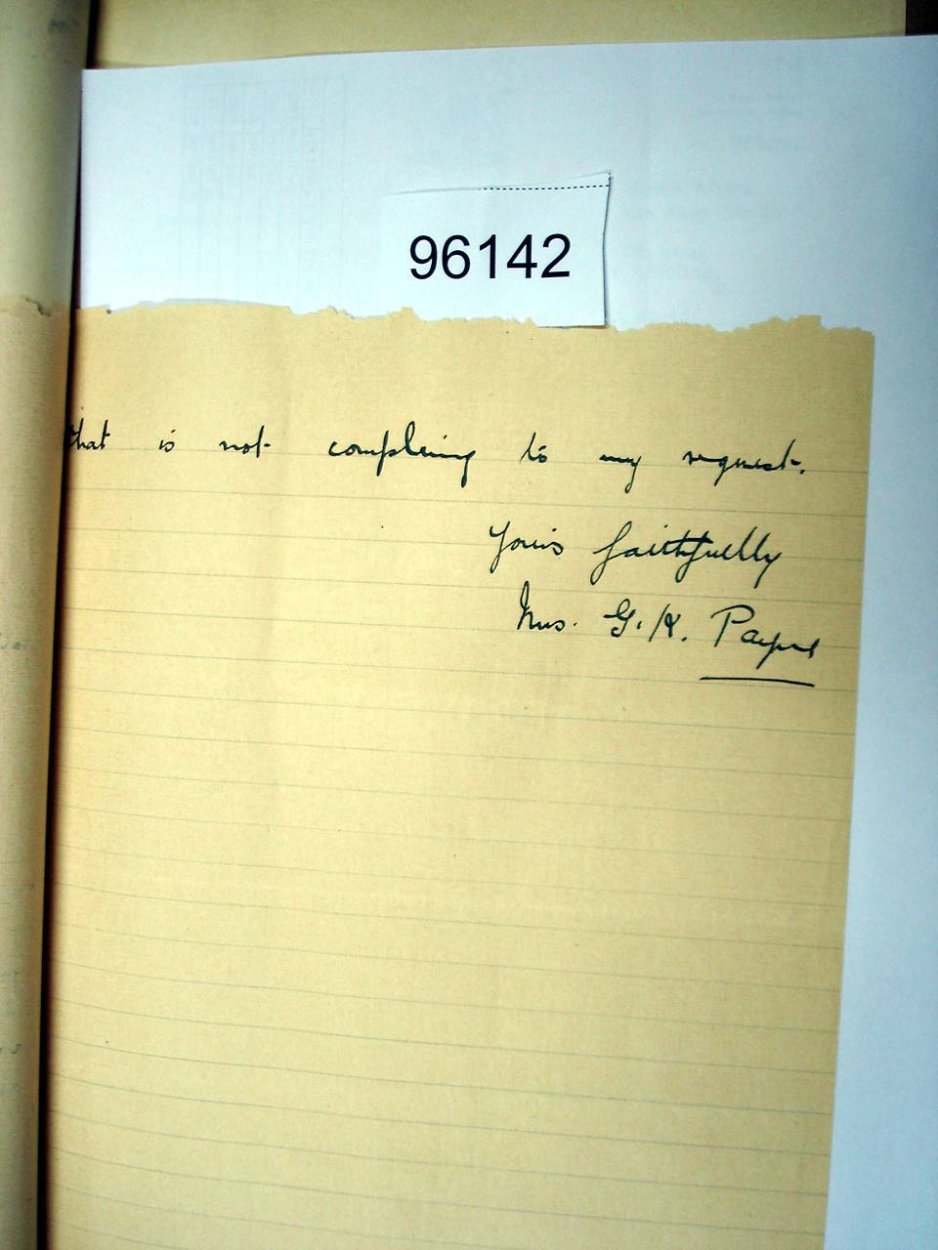 96142
that is not compleing to my request.
Yours faithfully
Mrs. G. K. Payne